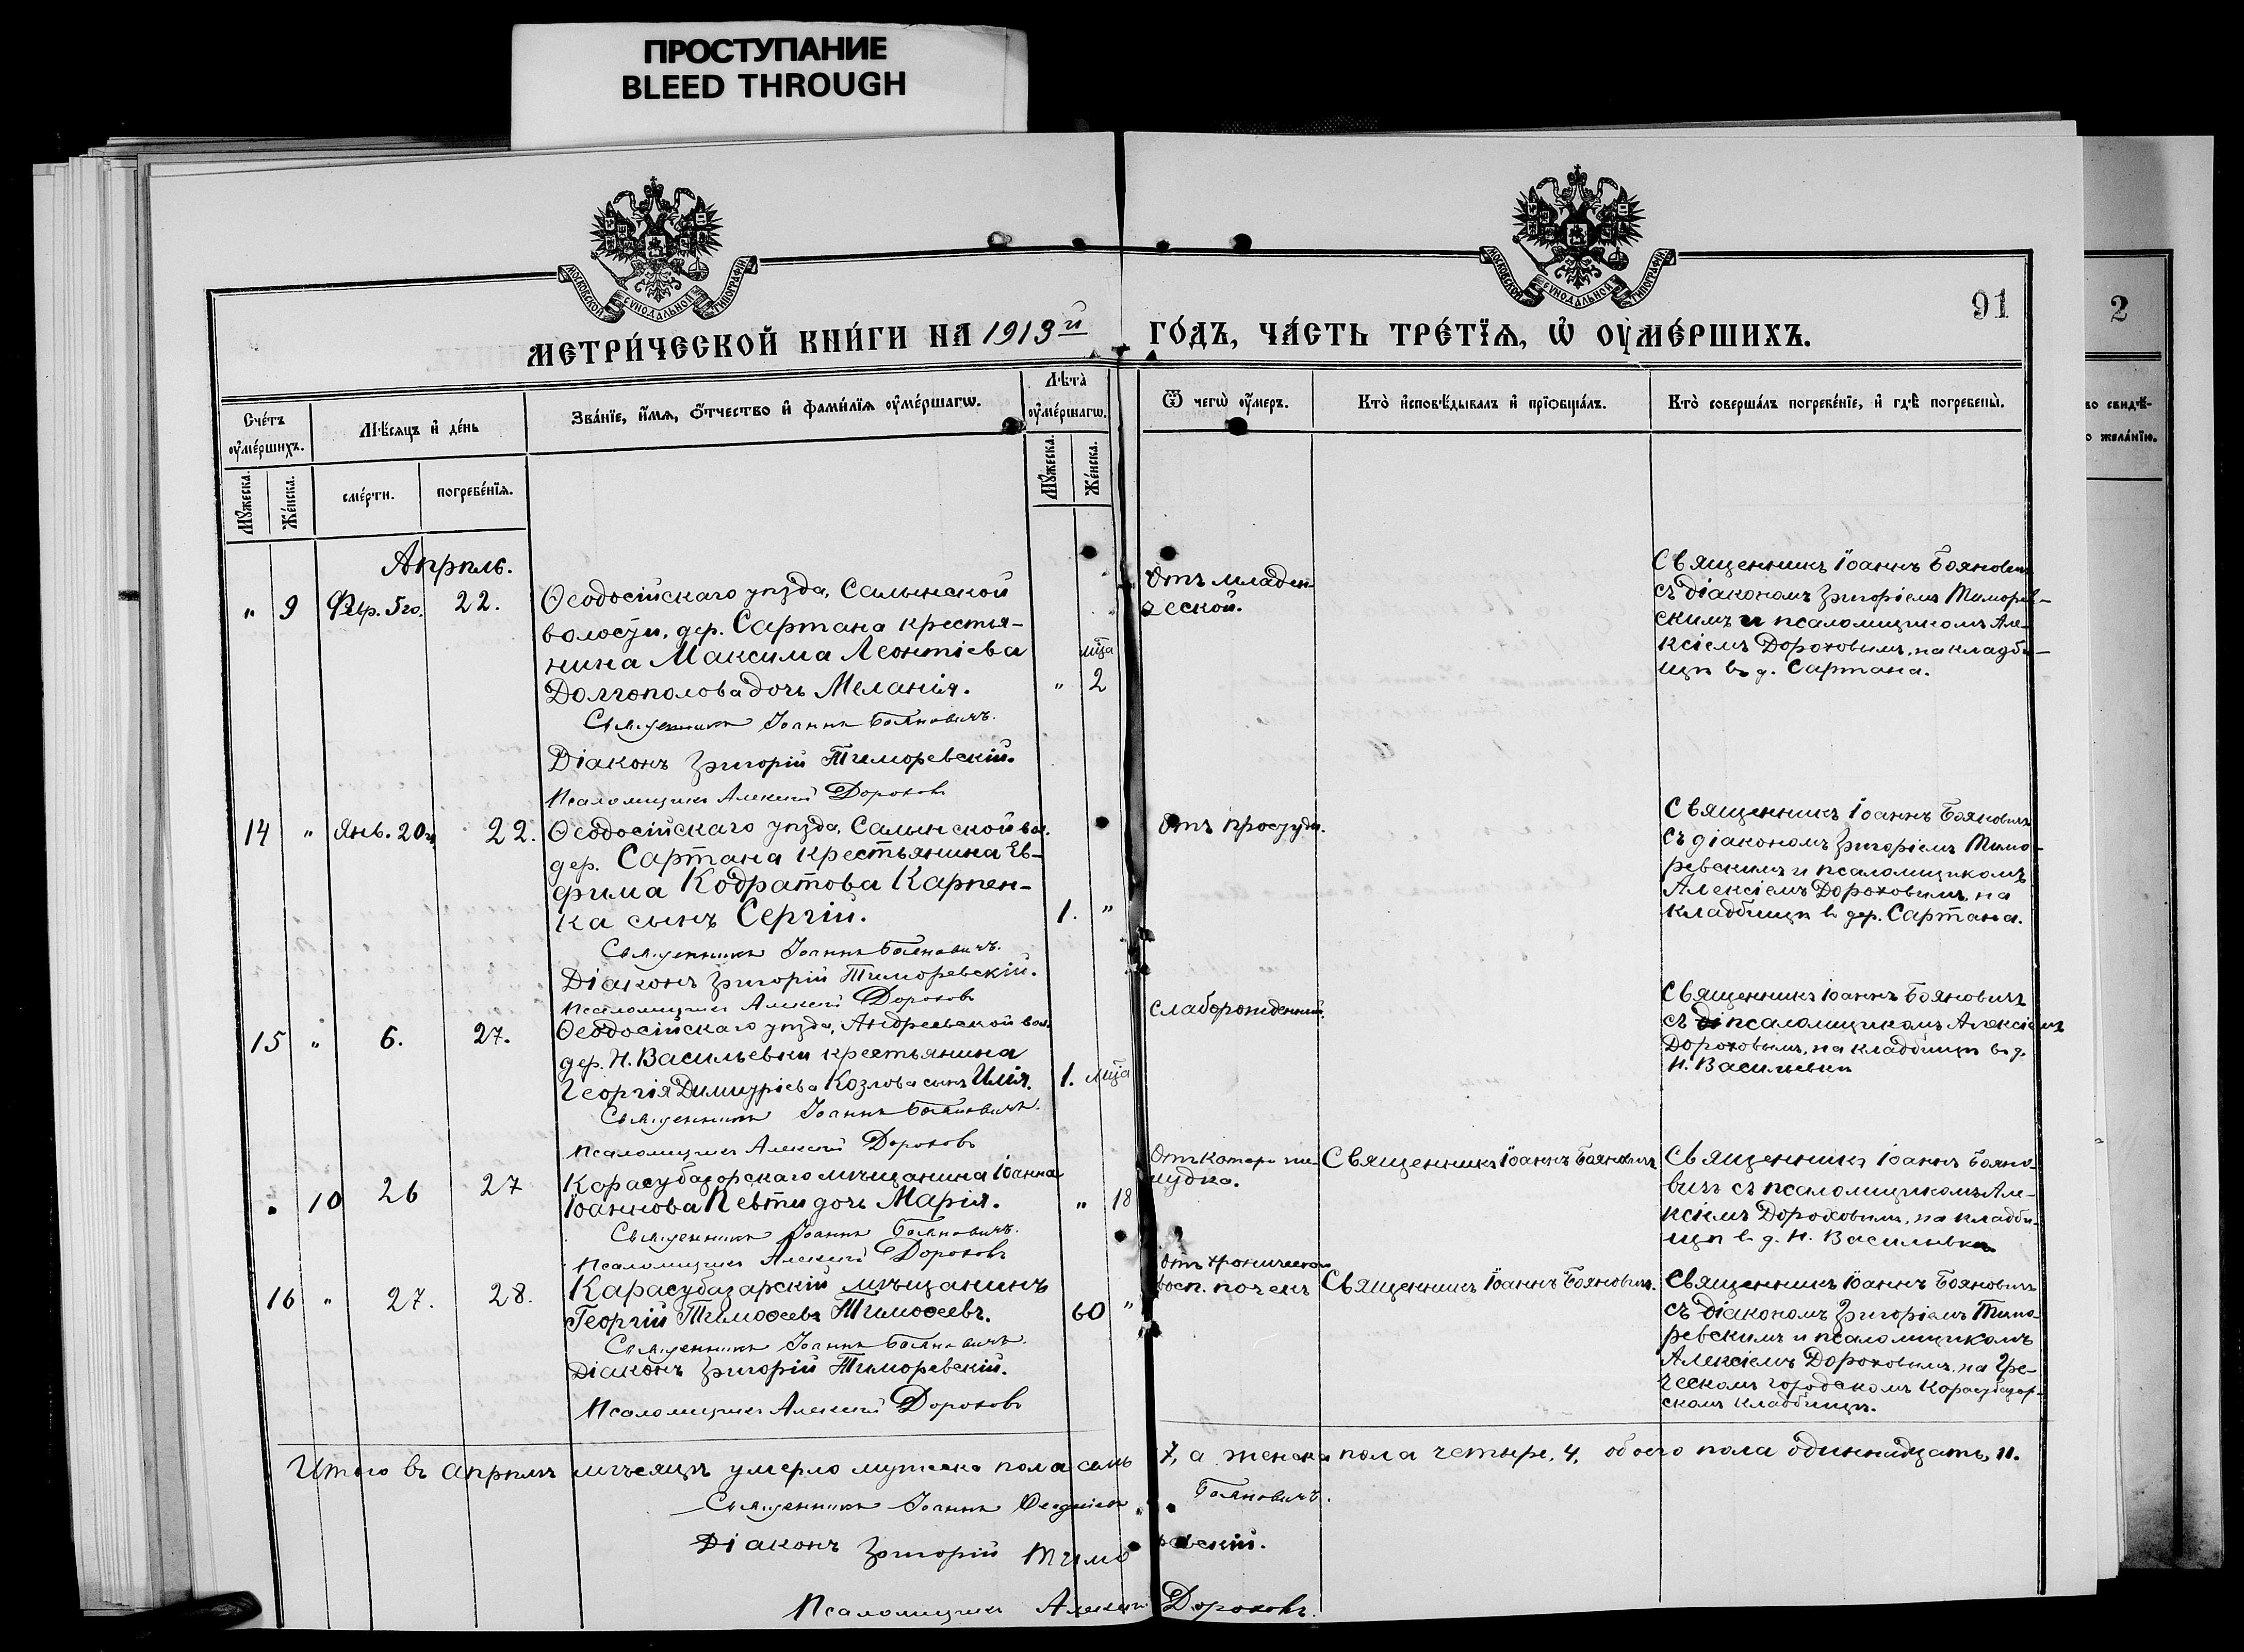 ПРОСТУПАНИЕ
BLEED THROUGH
МОСКОВСКОЙ СУНОДАЛЬНОЙ ТИПОГРАФІИ
МОСКОВСКОЙ СУНОДАЛЬНОЙ ТИПОГРАФІИ
91
2
МЕТРИ́ЧЕСКОЙ КНИ́ГИ НА 1913й
ГО́ДЪ, ЧА́СТЬ ТРЕ́ТЇѦ, Ѡ҆ ОУ҆МЕ́РШИХЪ.
Сче́тъ оу҆ме́ршихъ.
Мꙋ́жеска.
Же́нска.
Мѣ́сяцъ и҆ де́нь
сме́рти.
погребе́нїѧ.
Зва́нїе, и҆́мѧ, ѻ҆́тчество и҆ фами́лїѧ оу҆ме́ршагѡ.
Лѣ́та оу҆ме́ршагѡ.
Мꙋ́жеска.
Же́нска.
Ѿ чегѡ̀ оу҆́меръ.
Кто̀ и҆сповѣ́дывалъ и҆ прїѡбща́лъ.
Кто̀ соверша́лъ погребе́нїе, и҆ гдѣ̀ погребены̀.
во свидѣ́-
о жела́нїю.
Апрѣль.
" 9 Февр. 5го. 22.
Ѳеодосійскаго уѣзда, Салынской
волости, дер. Сартана крестья-
нина Максима Леонтіева
Долгополова дочь Меланія.
" мца 2
Священникъ Іоаннъ Бояновичъ.
Діаконъ Григорій Тиморевскій.
Псаломщикъ Алексій Дороховъ
Отъ младен
ческой.
Священникъ Іоаннъ Бояновичъ
съ діакономъ Григоріемъ Тиморев-
скимъ и псаломщикомъ Але-
ксіемъ Дороховымъ, на кладби-
щѣ въ д. Сартана.
14 " Янв. 20го 22.
Ѳеодосійскаго уѣзда, Салынской вол.
дер. Сартана крестьянина Ев-
фима Кодратова Карпен-
ка сынъ Сергій.
1. "
Священникъ Іоаннъ Бояновичъ.
Діаконъ Григорій Тиморевскій.
Псаломщикъ Алексій Дороховъ
Отъ простуды.
Священникъ Іоаннъ Бояновичъ
съ діакономъ Григоріемъ Тимо-
ревскимъ и псаломщикомъ
Алексіемъ Дороховымъ, на
кладбищѣ въ дер. Сартана.
15 " 6. 27.
Ѳеодосійскаго уѣзда, Андреевской вол.
дер. Н. Васильевки крестьянина
Георгія Димитріева Козлова сынъ Илія.
1. мца
Священникъ Іоаннъ Бояновичъ.
Псаломщикъ Алексій Дороховъ
Слаборожденный.
Священникъ Іоаннъ Бояновичъ
съ псаломщикомъ Алексіемъ
Дороховымъ, на кладбищѣ въ д.
Н. Васильевки
" 10 26 27
Карасубазарскаго мѣщанина Іоанна
Іоаннова дочь Марія.
" 18
Священникъ Іоаннъ Бояновичъ.
Псаломщикъ Алексій Дороховъ
Отъ катара же-
лудка.
Священникъ Іоаннъ Бояновичъ
Священникъ Іоаннъ Бояно-
вичъ съ псаломщикомъ Але-
ксіемъ Дороховымъ, на кладби-
щѣ въ д. Н. Васильевка
16 " 27. 28.
Карасубазарскій мѣщанинъ
Георгій Тимоѳеевъ Тимоѳеевъ.
60 "
Священникъ Іоаннъ Бояновичъ.
Діаконъ Григорій Тиморевскій.
Псаломщикъ Алексій Дороховъ
Отъ хроническаго
восп. почекъ
Священникъ Іоаннъ Бояновичъ.
Священникъ Іоаннъ Бояновичъ
съ діакономъ Григоріемъ Тимо-
ревскимъ и псаломщикомъ
Алексіемъ Дороховымъ, на Гре-
ческомъ городскомъ Карасубазар-
скомъ кладбищѣ.
Итого въ апрѣлѣ мѣсяцѣ умерло мужеска пола семь 7, а женска пола четыре, 4, обоего пола одиннадцать, 11.
Священникъ Іоаннъ Бояновичъ.
Діаконъ Григорій Тиморевскій.
Псаломщикъ Алексій Дороховъ.